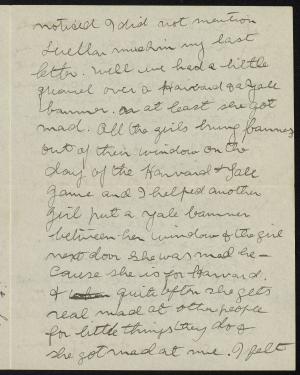 noticed I did not mention
Luella much in my last
letter. Well we had a little
quarrel over a Harvard & Yale
banner. or at least she got
mad. All the girls hung banners
out of their window on the
day of the Harvard & Yale
game and I helped another
girl put a Yale banner
between her window & the girl
next door she was mad be-
cause she is for Harvard.
& quite often she gets
real mad at other people
for little things they do &
she got mad at me. I felt